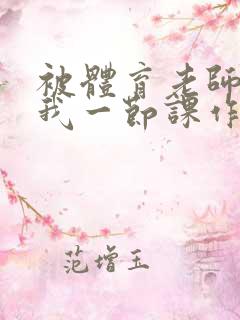 被體育老師
我一節課作
范增玉